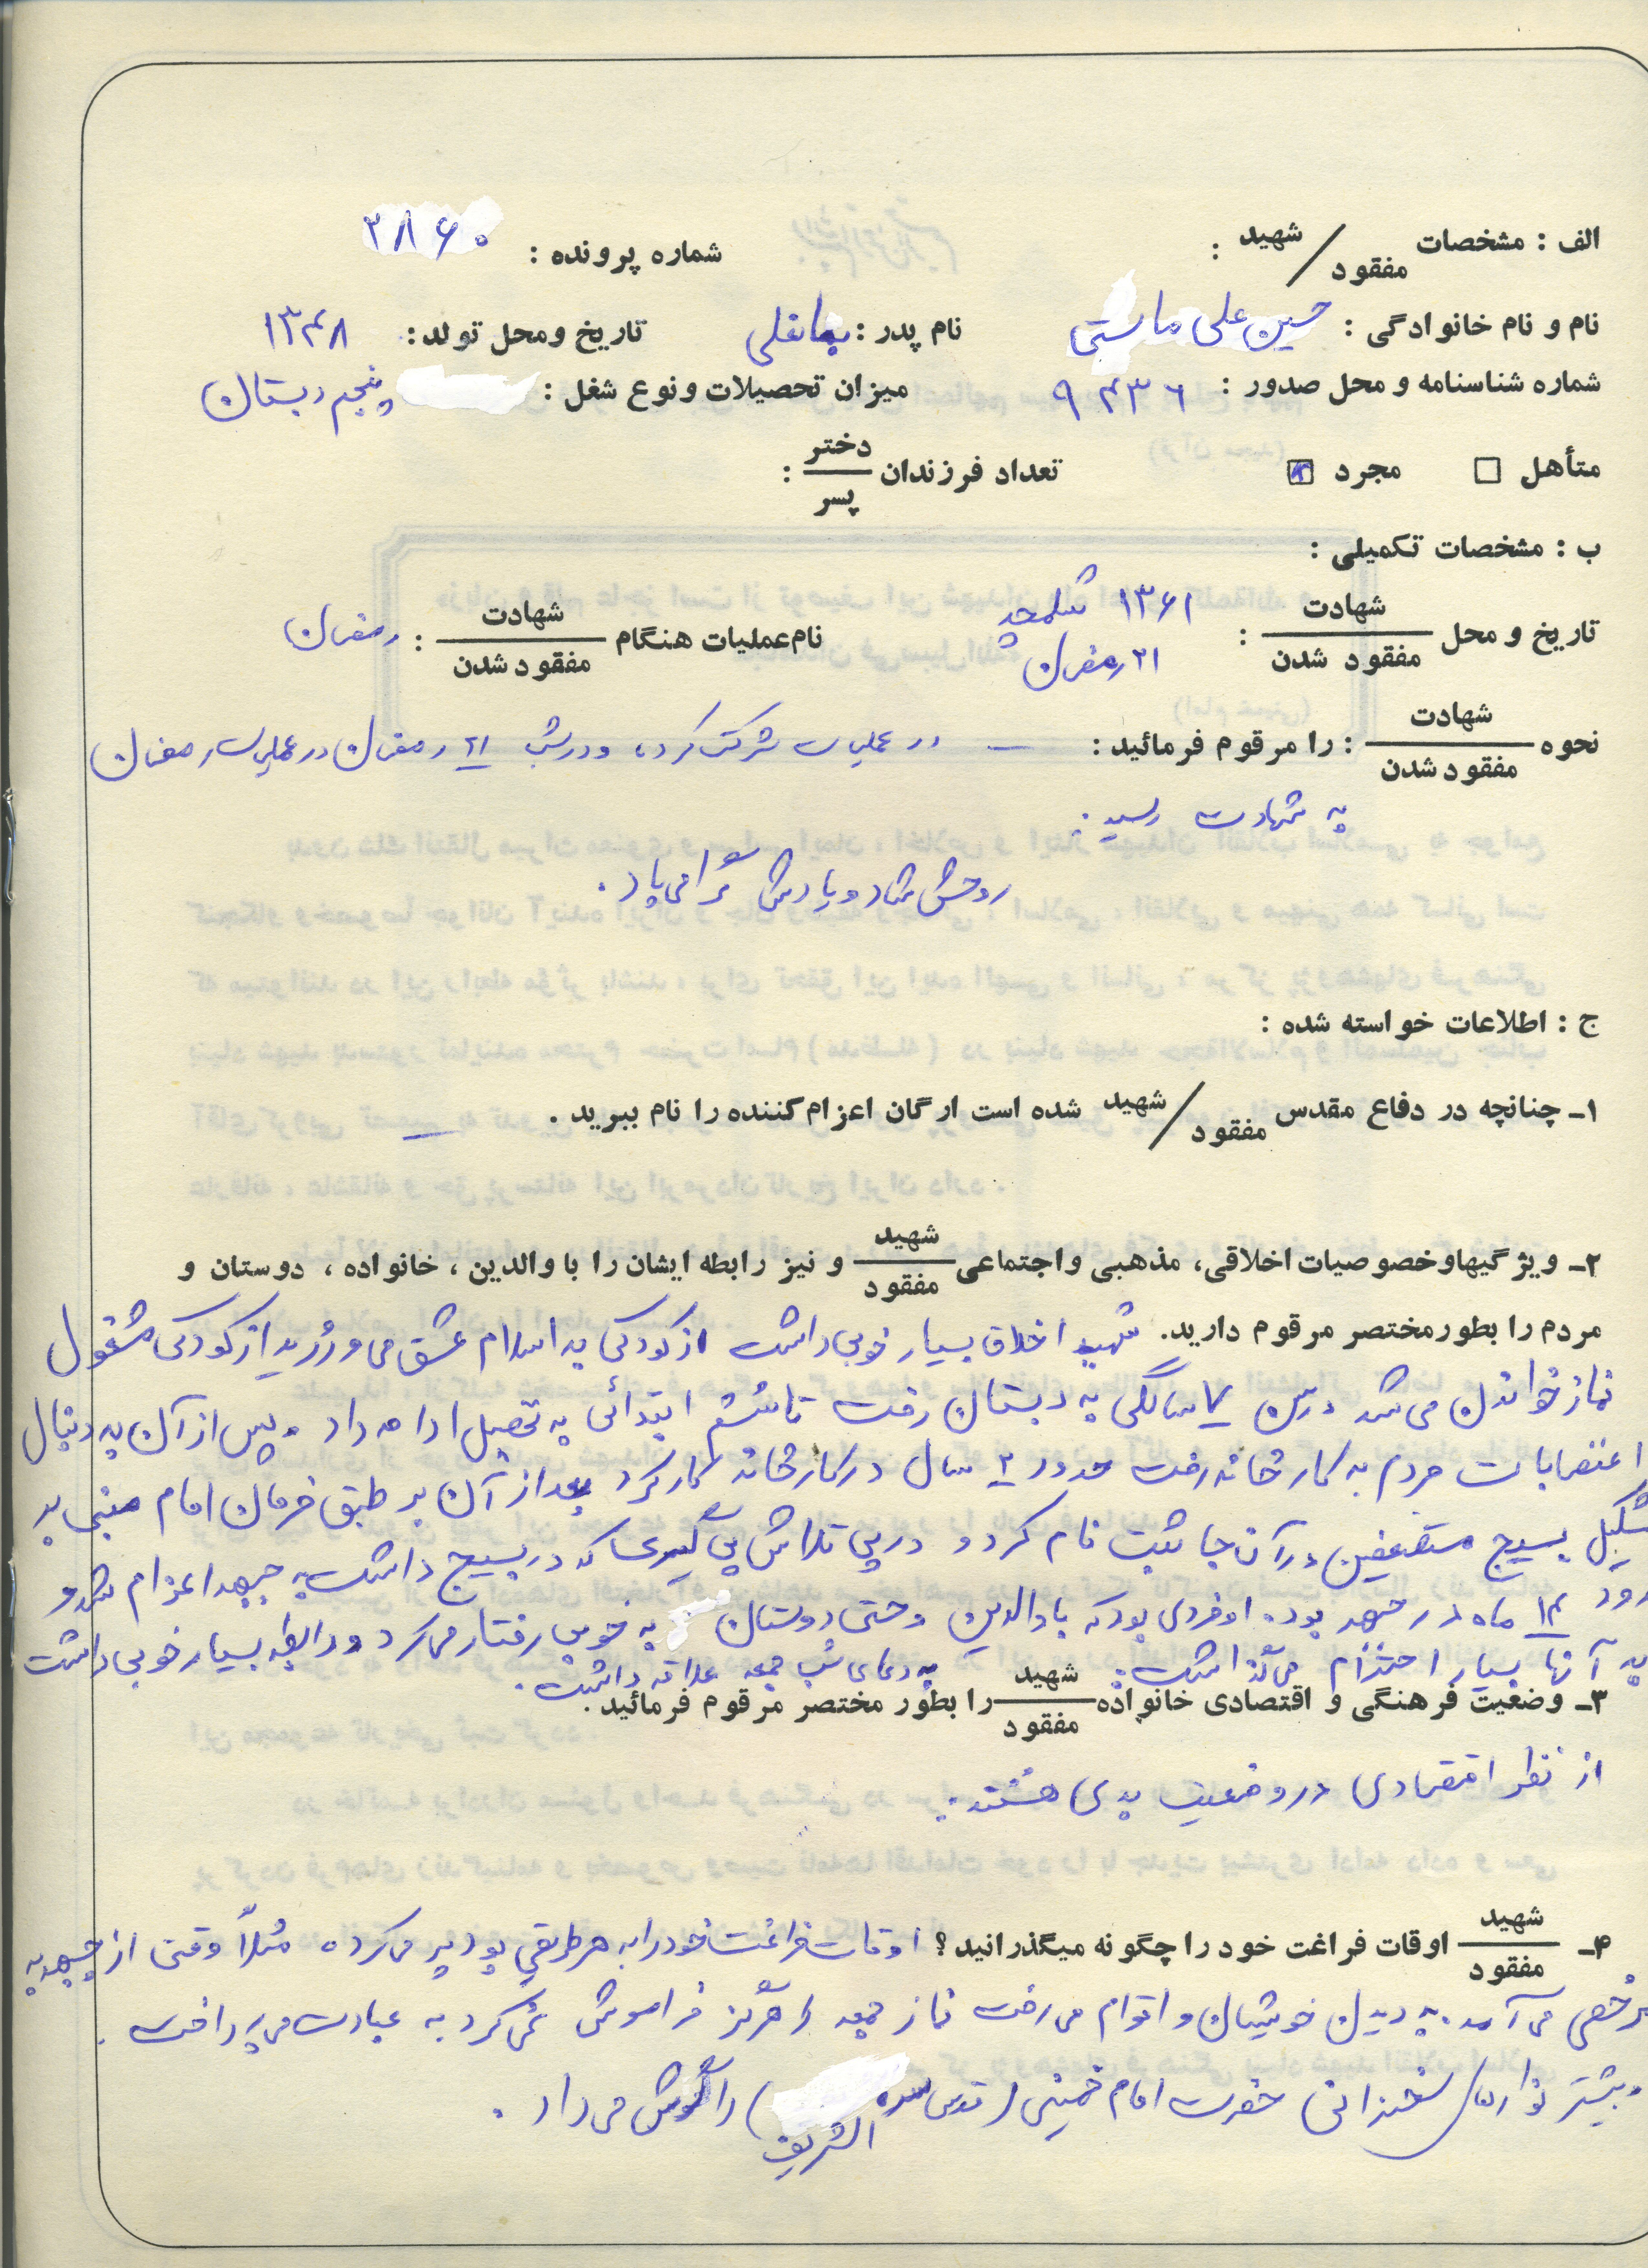 الف : مشخصات شهید / مفقود : شماره پرونده : ۲۸۶۰
نام و نام خانوادگی : حسین علی ماستی نام پدر : تاریخ ومحل تولد : ۱۳۴۸
شماره شناسنامه و محل صدور : ۹۴۳۶ میزان تحصیلات ونوع شغل : پنجم دبستان
متأهل □ مجرد تعداد فرزندان دختر / پسر :
ب : مشخصات تکمیلی :
تاریخ و محل شهادت / مفقود شدن : ۱۳۶۱ شلمچه ۲۱ رمضان نام عملیات هنگام شهادت / مفقود شدن : رمضان
نحوه شهادت / مفقود شدن : را مرقوم فرمائید : — در عملیات شرکت کرد، و در شب ۲۱ رمضان در عملیات رمضان
به شهادت رسید .
روحش شاد و یادش گرامی باد .
ج : اطلاعات خواسته شده :
۱ـ چنانچه در دفاع مقدس شهید / مفقود شده است ارگان اعزام کننده را نام ببرید . —
۲ـ ویژگیهاوخصوصیات اخلاقی، مذهبی واجتماعی شهید / مفقود و نیز رابطه ایشان را با والدین ، خانواده ، دوستان و
مردم را بطور مختصر مرقوم دارید. شهید اخلاق بسیار خوبی داشت از کودکی به اسلام عشق می ورزید از کودکی مشغول
نماز خواندن می شد در سن ۷ سالگی به دبستان رفت تا ششم ابتدائی به تحصیل ادامه داد . پس از آن به دنبال
اعتصابات مردم به کارخانه رفت حدود ۲ سال در کارخانه کار کرد بعد از آن بر طبق فرمان امام مبنی بر
تشکیل بسیج مستضعفین در آن جا ثبت نام کرد و در پی تلاش پی گیری که در بسیج داشت به جبهه اعزام شد و
۱۴ ماه در جبهه بود. او فردی بود که با والدین و حتی دوستان به خوبی رفتار می کرد و رابطه بسیار خوبی داشت
به آنها بسیار احترام می گذاشت . به دعای شب جمعه علاقه داشت .
۳ـ وضعیت فرهنگی و اقتصادی خانواده شهید / مفقود را بطور مختصر مرقوم فرمائید .
از نظر اقتصادی در وضعیت بدی هستند .
۴ـ شهید / مفقود اوقات فراغت خود را چگونه میگذرانید ؟ اوقات فراغت خود را به هر طریقی بود پر می کرد، مثلاً وقتی از جبهه به
مرخصی می آمد . به دیدن خویشان و اقوام می رفت نماز جمعه را هرگز فراموش نمی کرد به عبادت می پرداخت .
و بیشتر نوارهای سخنرانی حضرت امام خمینی (قدس سره الشریف) را گوش می داد .